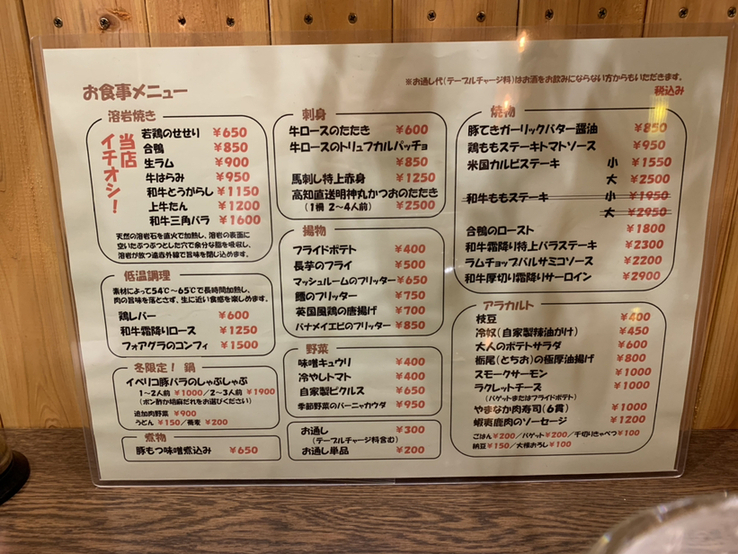 お食事メニュー
※お通し代(テーブルチャージ料)はお酒をお飲みにならない方からもいただきます。
税込み
溶岩焼き
当店イチオシ!
若鶏のせせり ¥650
合鴨 ¥850
生ラム ¥900
牛はらみ ¥950
和牛とうがらし ¥1150
上牛たん ¥1200
和牛三角バラ ¥1600
天然の溶岩石を直火で加熱し、溶岩の表面に
空いたぶつぶつとした穴で余分な脂を吸収し、
溶岩が放つ遠赤外線で旨味を閉じ込めます。
低温調理
素材によって54℃〜65℃で長時間加熱し、
肉の旨味を落とさず、生に近い食感を楽しめます。
鶏レバー ¥600
和牛霜降りロース ¥1250
フォアグラのコンフィ ¥1500
冬限定! 鍋
イベリコ豚バラのしゃぶしゃぶ
1〜2人前 ¥1000/2〜3人前 ¥1900
(ポン酢か胡麻だれをお選びください)
追加肉野菜 ¥900
うどん ¥150/蕎麦 ¥200
煮物
豚もつ味噌煮込み ¥650
刺身
牛ロースのたたき ¥600
牛ロースのトリュフカルパッチョ
¥850
馬刺し特上赤身 ¥1250
高知直送明神丸かつおのたたき
(1柵 2〜4人前) ¥2500
揚物
フライドポテト ¥400
長芋のフライ ¥500
マッシュルームのフリッター ¥650
鱈のフリッター ¥750
英国風鶏の唐揚げ ¥700
バナメイエビのフリッター ¥850
野菜
味噌キュウリ ¥400
冷やしトマト ¥400
自家製ピクルス ¥650
季節野菜のバーニャカウダ ¥950
お通し ¥300
(テーブルチャージ料含む)
お通し単品 ¥200
焼物
豚てきガーリックバター醤油 ¥850
鶏ももステーキトマトソース ¥950
米国カルビステーキ 小 ¥1550
大 ¥2500
和牛ももステーキ 小 ¥1950
大 ¥2950
合鴨のロースト ¥1800
和牛霜降り特上バラステーキ ¥2300
ラムチョップバルサミコソース ¥2200
和牛厚切り霜降りサーロイン ¥2900
アラカルト
枝豆 ¥400
冷奴(自家製辣油がけ) ¥450
大人のポテトサラダ ¥600
栃尾(とちお)の極厚油揚げ ¥800
スモークサーモン ¥1000
ラクレットチーズ ¥1000
(バゲットまたはフライドポテト)
やまなか肉寿司(6貫) ¥1000
蝦夷鹿肉のソーセージ ¥1200
ごはん ¥200/バゲット ¥200/千切りきゃべつ ¥100
納豆 ¥150/大根おろし ¥100